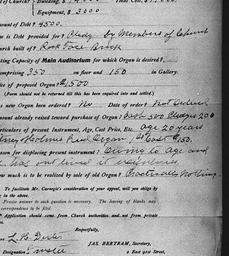 of Church Building, $
Equipment, $ 3000
ount of Debt? 4500.
is Debt provided for? Aldg by Members of Church
urch built of? Rock Face Brick
ting Capacity of Main Auditorium for which Organ is desired?
omprising 350 on floor and 150 in Gallery.
ice of proposed Organ? $1500
(Form should not be returned till this has been inquired into and settled.)
s new Organ been ordered? No Date of order? Not Ordered
mount already raised toward purchase of Organ?
articulars of present Instrument, Age, Cost Price, Etc. Age 20 years
Reed Organ Cost $150.
eason for displacing present instrument? Owing to Age and
has out lived its usefulness
ow much is to be realized by sale of old Organ? Practically Nothing
To facilitate Mr. Carnegie's consideration of your appeal, will you oblige by
Precise answer to each question is necessary. The leaving of blanks may
correspondence to be filed.
Application should come from Church authorities and not from private
Respectfully,
JAS. BERTRAM, Secretary,
Designation Trustee 2 East 91st Street,